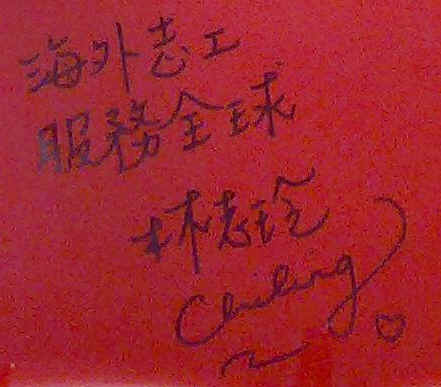 海外志工
服務全球
林志玲
Chiling